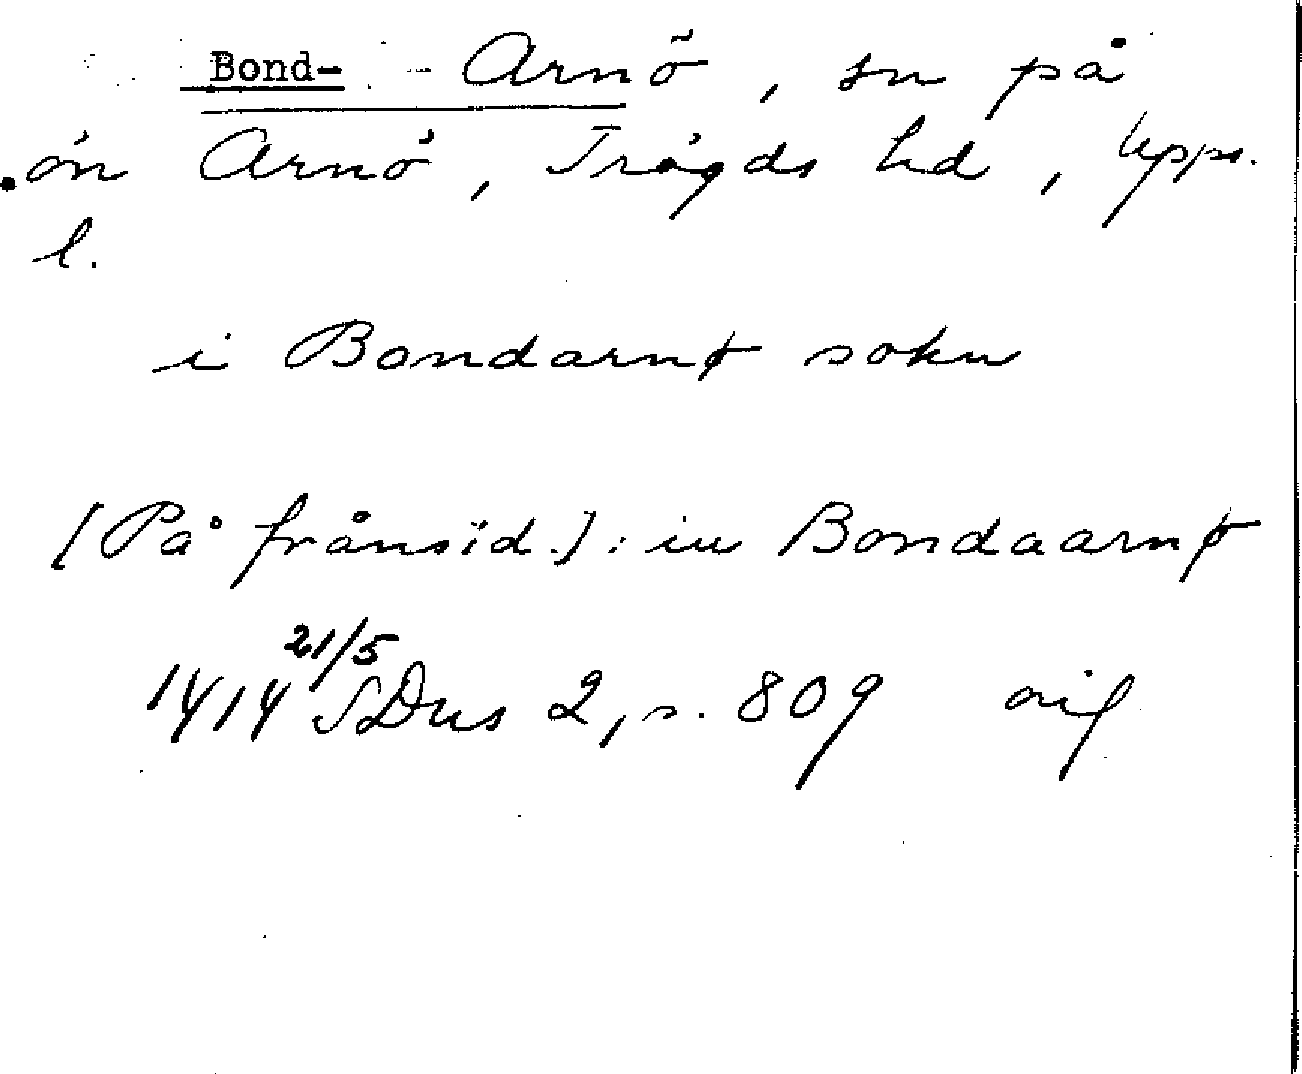 Bond- Arnö, sn på
ön Arnö, Trögds hd, Uppl.
l.
i Bondarnø sokn
[På frånsid.]: in Bondaarnø
1414 21/5 SDns 2, s. 809 orig